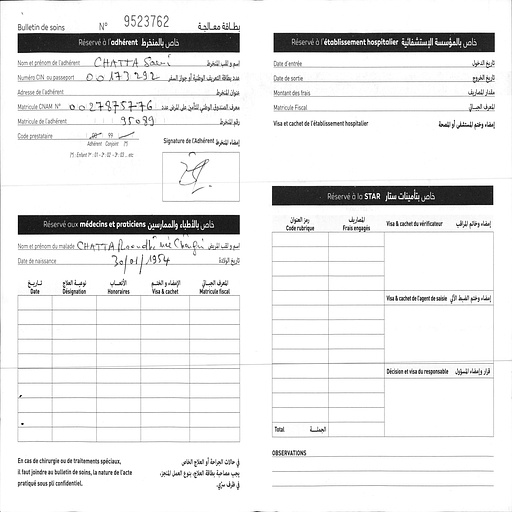 Bulletin de soins N° 9523762 بطاقة معالجة
Réservé à l'adhérent خاص بالمنخرط
Nom et prénom de l'adhérent CHATTA إسم و لقب المنخرط
Numéro CIN ou passeport 00173292 عدد بطاقة التعريف الوطنية أو جواز السفر
Adresse de l'adhérent عنوان المنخرط
Matricule CNAM N° 0027875776 معرف الصندوق الوطني للتأمين على المرض عدد
Matricule de l'adhérent 95089 رقم المنخرط
Code prestataire 99
Adhérent Conjoint (*)
(*) : Enfant 1er : 01 - 2e : 02 - 3e : 03 ... etc
Signature de l'Adhérent إمضاء المنخرط
Réservé aux médecins et praticiens خاص بالأطباء والممارسين
Nom et prénom du malade CHATTA née إسم و لقب المريض
Date de naissance 30/01/1954 تاريخ الولادة
تاريخ نوعية العلاج الأتعاب الإمضاء و الختم المعرف الجبائي
Date Désignation Honoraires Visa & cachet Matricule fiscal
En cas de chirurgie ou de traitements spéciaux,
il faut joindre au bulletin de soins, la nature de l'acte
pratiqué sous pli confidentiel.
في حالات الجراحة أو العلاج الخاص
يجب مصاحبة بطاقة العلاج، بنوع العمل المنجز،
في ظرف سري.
Réservé à l'établissement hospitalier خاص بالمؤسسة الإستشفائية
Date d'entrée تاريخ الدخول
Date de sortie تاريخ الخروج
Montant des frais مقدار المصاريف
Matricule Fiscal المعرف الجبائي
Visa et cachet de l'établissement hospitalier إمضاء وختم المستشفى أو المصحة
Réservé à la STAR خاص بتأمينات ستار
رمز العنوان المصاريف
Code rubrique Frais engagés
Visa & cachet du vérificateur إمضاء وخاتم المراقب
Visa & cachet de l'agent de saisie إمضاء وختم الضبط الآلي
Décision et visa du responsable قرار وإمضاء المسؤول
Total الجملة
OBSERVATIONS